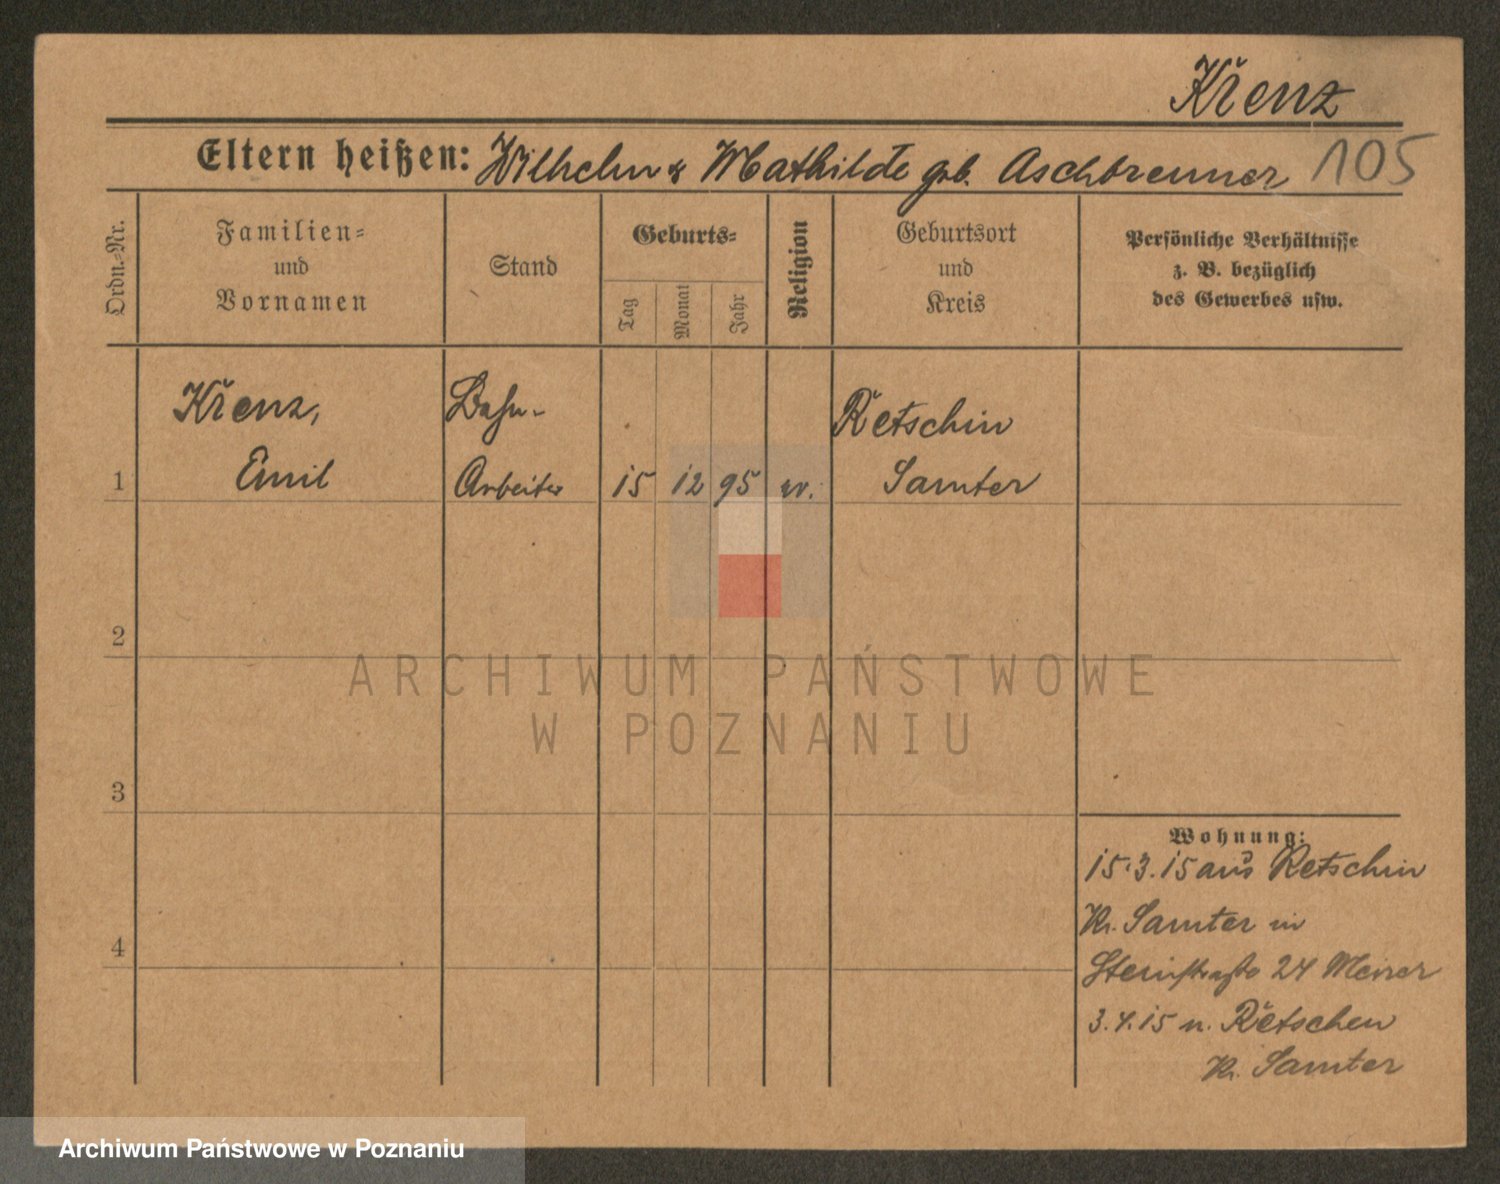 Krenz
Eltern heißen: Wilhelm & Mathilde geb. Aschbrenner 105
Ordn.-Nr.
Familien-
und
Vornamen
Stand
Geburts-
Tag
Monat
Jahr
Religion
Geburtsort
und
Kreis
Persönliche Verhältnisse
z. B. bezüglich
des Gewerbes usw.
Krenz, Bahn- Retschin
1 Emil Arbeiter 15 12 95 ev. Samter
2
3
4
Wohnung:
15.3.15 aus Retschin
Kr. Samter in
Steinstraße 24
3.4.15 n. Retschen
Kr. Samter
ARCHIWUM PAŃSTWOWE
W POZNANIU
Archiwum Państwowe w Poznaniu